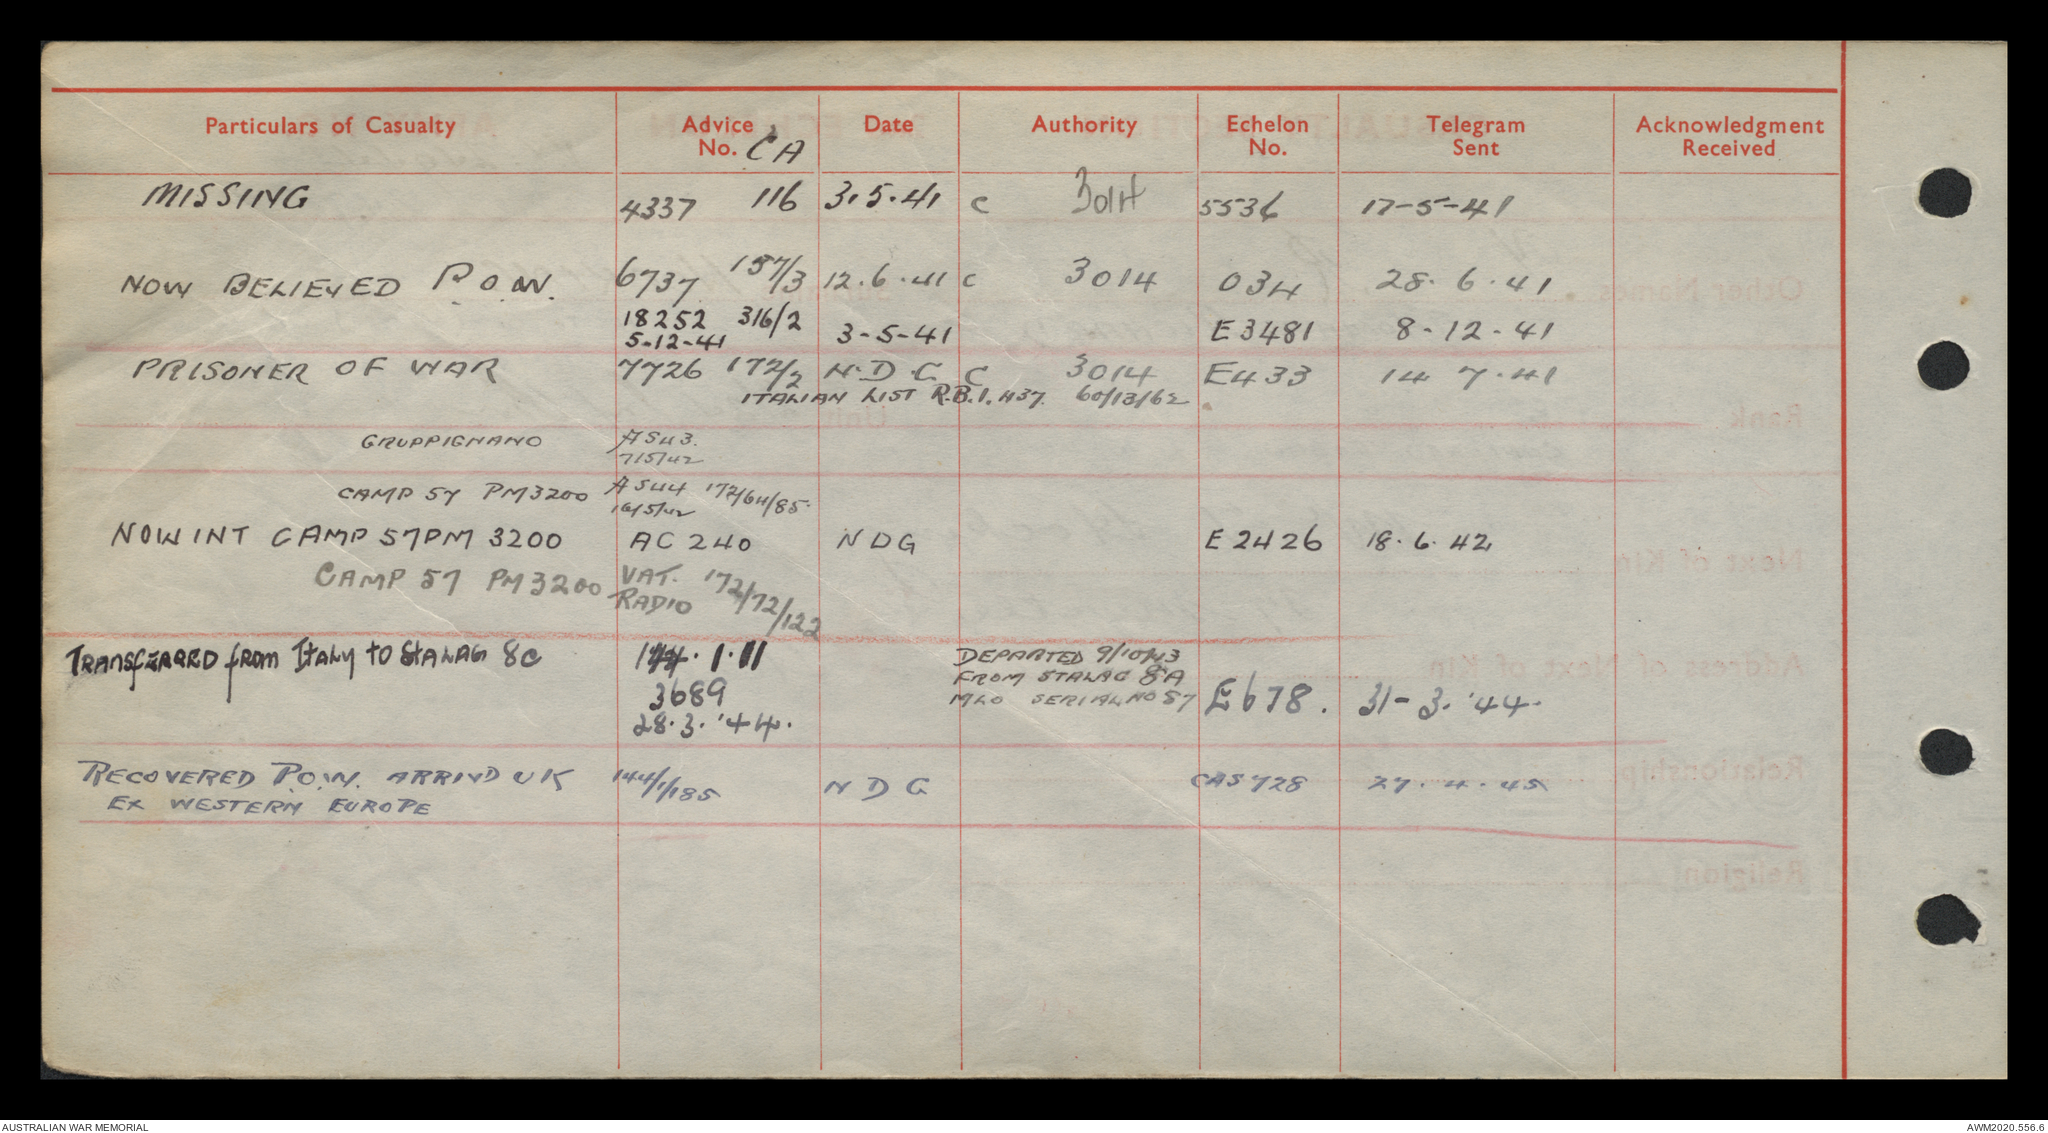 Particulars of Casualty Advice No. CA Date Authority Echelon No. Telegram Sent Acknowledgment Received
MISSING 4337 116 3.5.41 C 3014 5536 17-5-41
NOW BELIEVED P.O.W. 6737 157/3 12.6.41 C 3014 034 28.6.41
18252 316/2 3-5-41 E3481 8-12-41
5-12-41
PRISONER OF WAR 7726 172/2 N.D.G. C 3014 E433 14 7.41
ITALIAN LIST R.B.1.437. 60/13/62
GRUPPIGNANO AS43.
7/5/42
CAMP 57 PM3200 AS44 172/64/85.
16/5/42
NOW INT CAMP 57 PM 3200 AC 240 NDG E 2426 18.6.42
CAMP 57 PM3200 VAT. RADIO 172/72/122
TRANSFERRED from ITALY TO STALAG 8C 144.1.11 DEPARTED 9/10/43
FROM STALAG 8A
3689 MLO SERIAL NO 57 E678. 31-3.'44.
28.3.'44.
RECOVERED P.O.W. ARRIVD UK 144/1/185 NDG CAS728 27.4.45
EX WESTERN EUROPE
AUSTRALIAN WAR MEMORIAL AWM2020.556.6